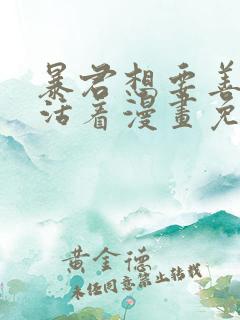 暴君想要善
活着漫畫免
黄金德
未经同意禁止转载